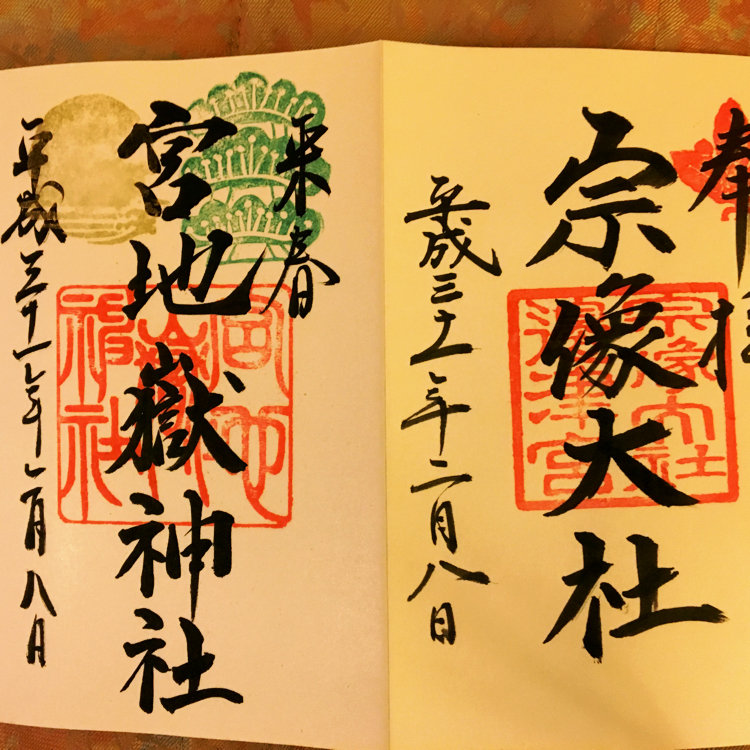 奉拝
宗像大社
宗像大社
邊津宮
平成三十一年二月八日
来春
宮地嶽神社
宮地
嶽神
神社
平成三十一年二月八日